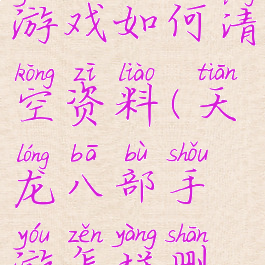 游戏如何清
kòng zī liào tiān
空资料(天
lóng bā bù shǒu
龙八部手
yóu zěn yàng shān
游怎样删